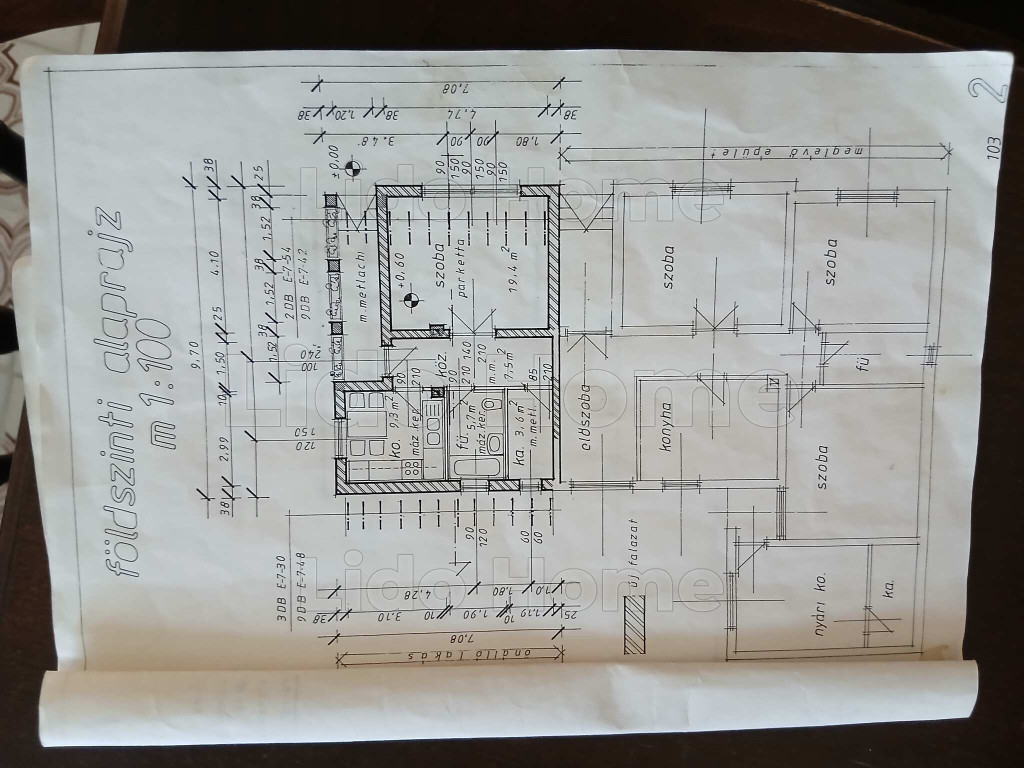 földszinti alaprajz
m 1:100
9.70
38
4.10
25
1.50
10
2.99
38
25
38
1.52
38
1.52
38
1.52
2 DB E-7-54
9 DB E-7-42
240
100
150
120
3 DB E-7-30
9 DB E-7-48
7,08
38
1.20
38
4.74
38
3.48
90
90
1,80
90
150
90
150
90
150
±0,00
m.metlachi
+0,60
szoba
parketta
19,4 m²
köz.
m.m.
7,5 m²
140
210
90
210
90
210
85
210
ko.
9,3 m²
máz. ker.
fü.
5,7 m²
máz. ker.
ka. 3,6 m²
m.metl.
90
120
60
60
4,28
1,80
1,0
38
3.10
10
1.90
10
1.19
25
7.08
önálló lakás
új falazat
meglevő épület
előszoba
konyha
szoba
szoba
szoba
fü
nyári ko.
ka.
2
103
Lido Home
Lido Home
Lido Home